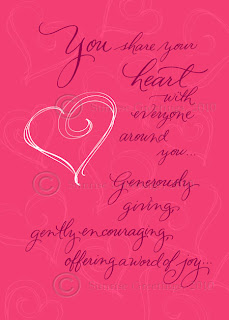 You share your
heart
with
everyone
around
you...
Generously
giving,
gently encouraging,
offering a word of joy...